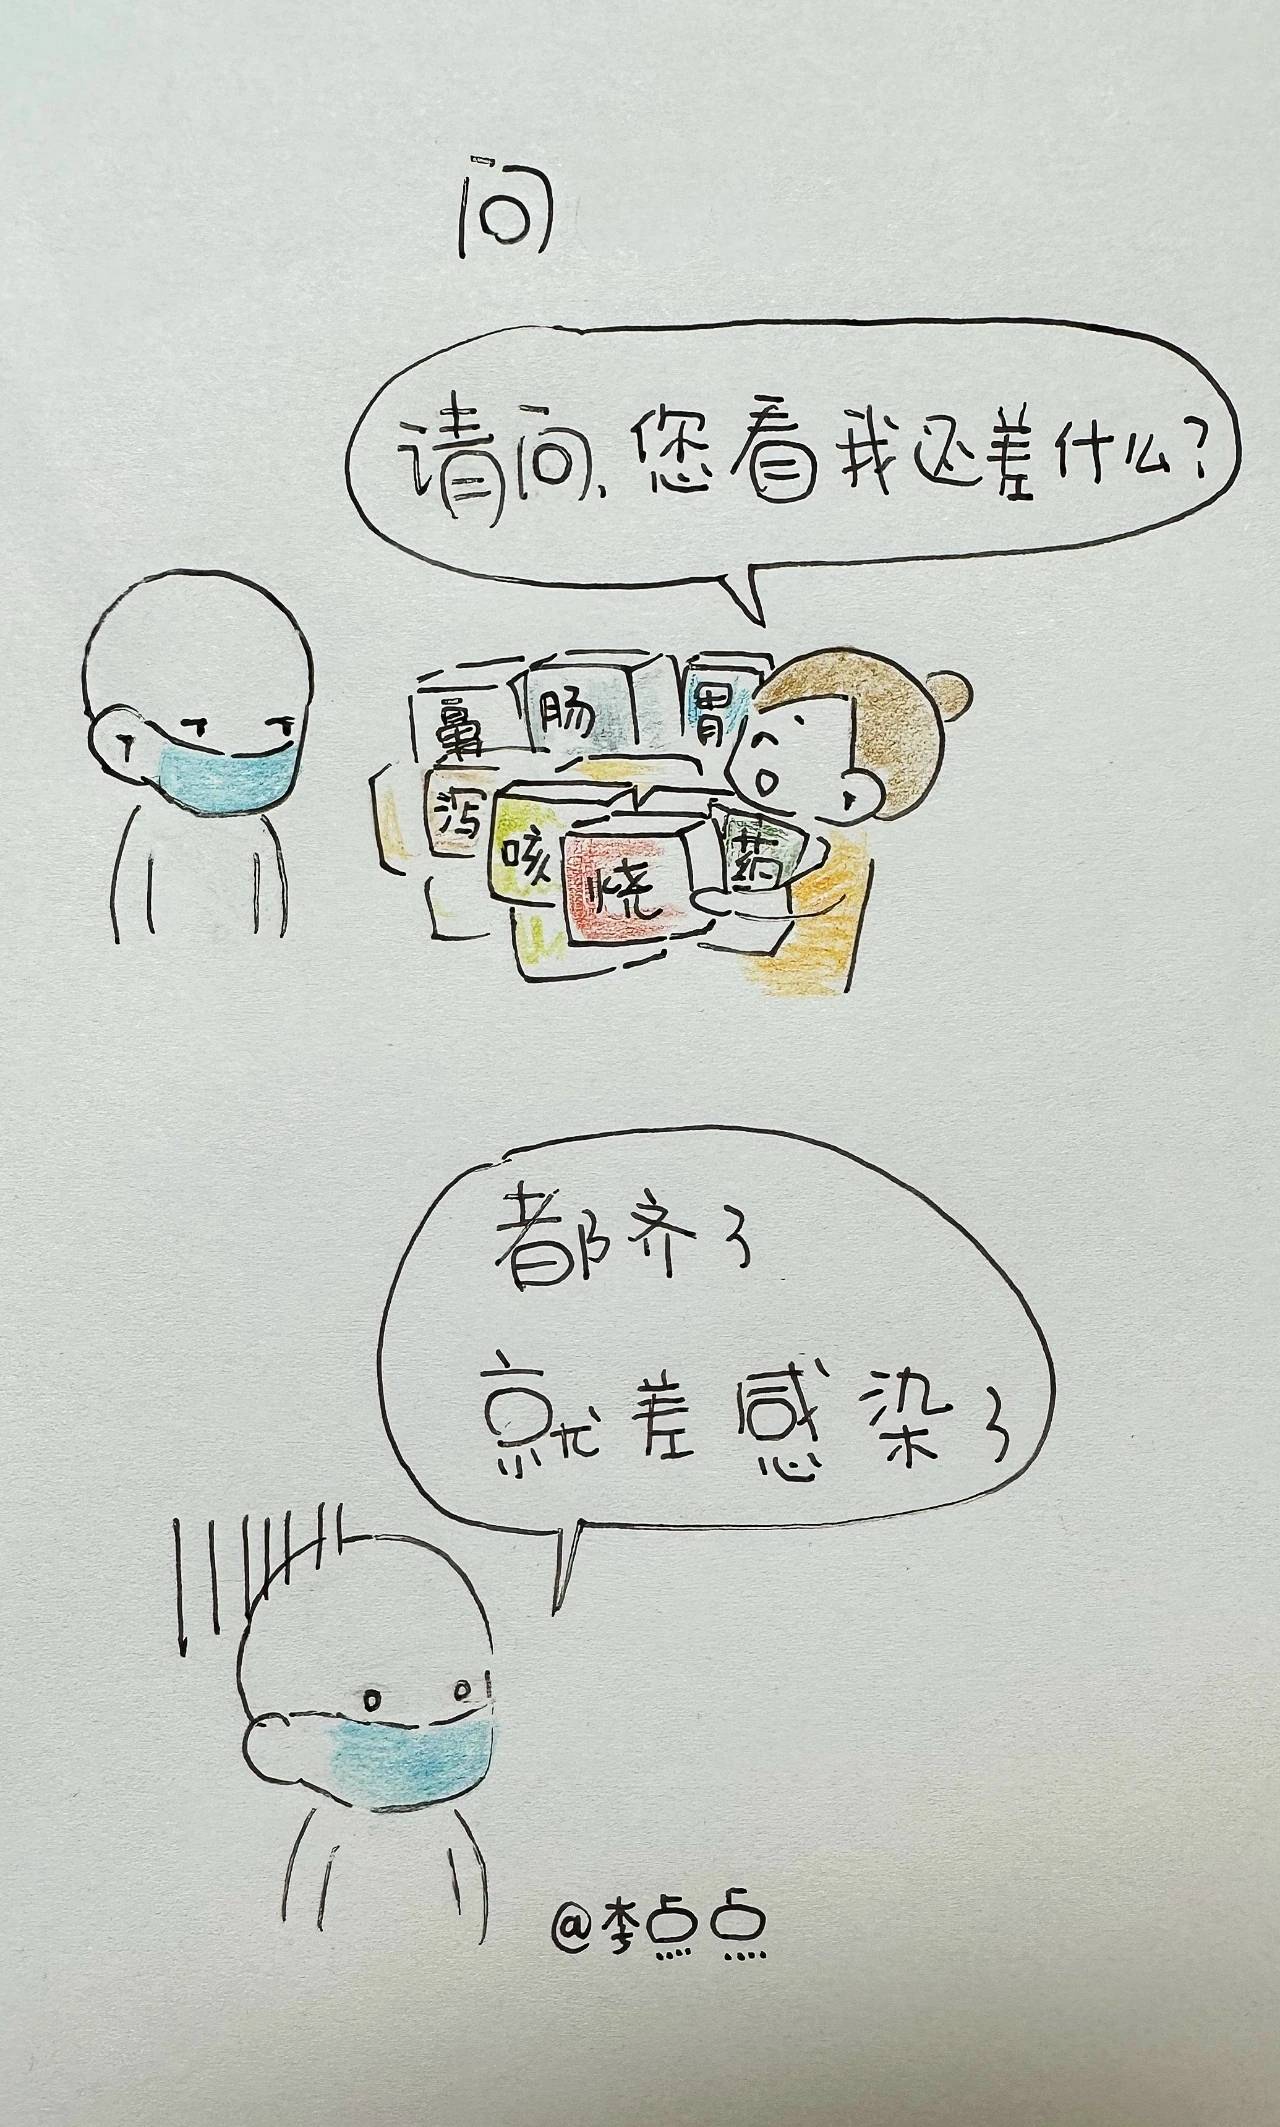 问
请问,您看我还差什么?
鼻
肠
胃
泻
咳
烧
药
都齐了
就差感染了
@李点点